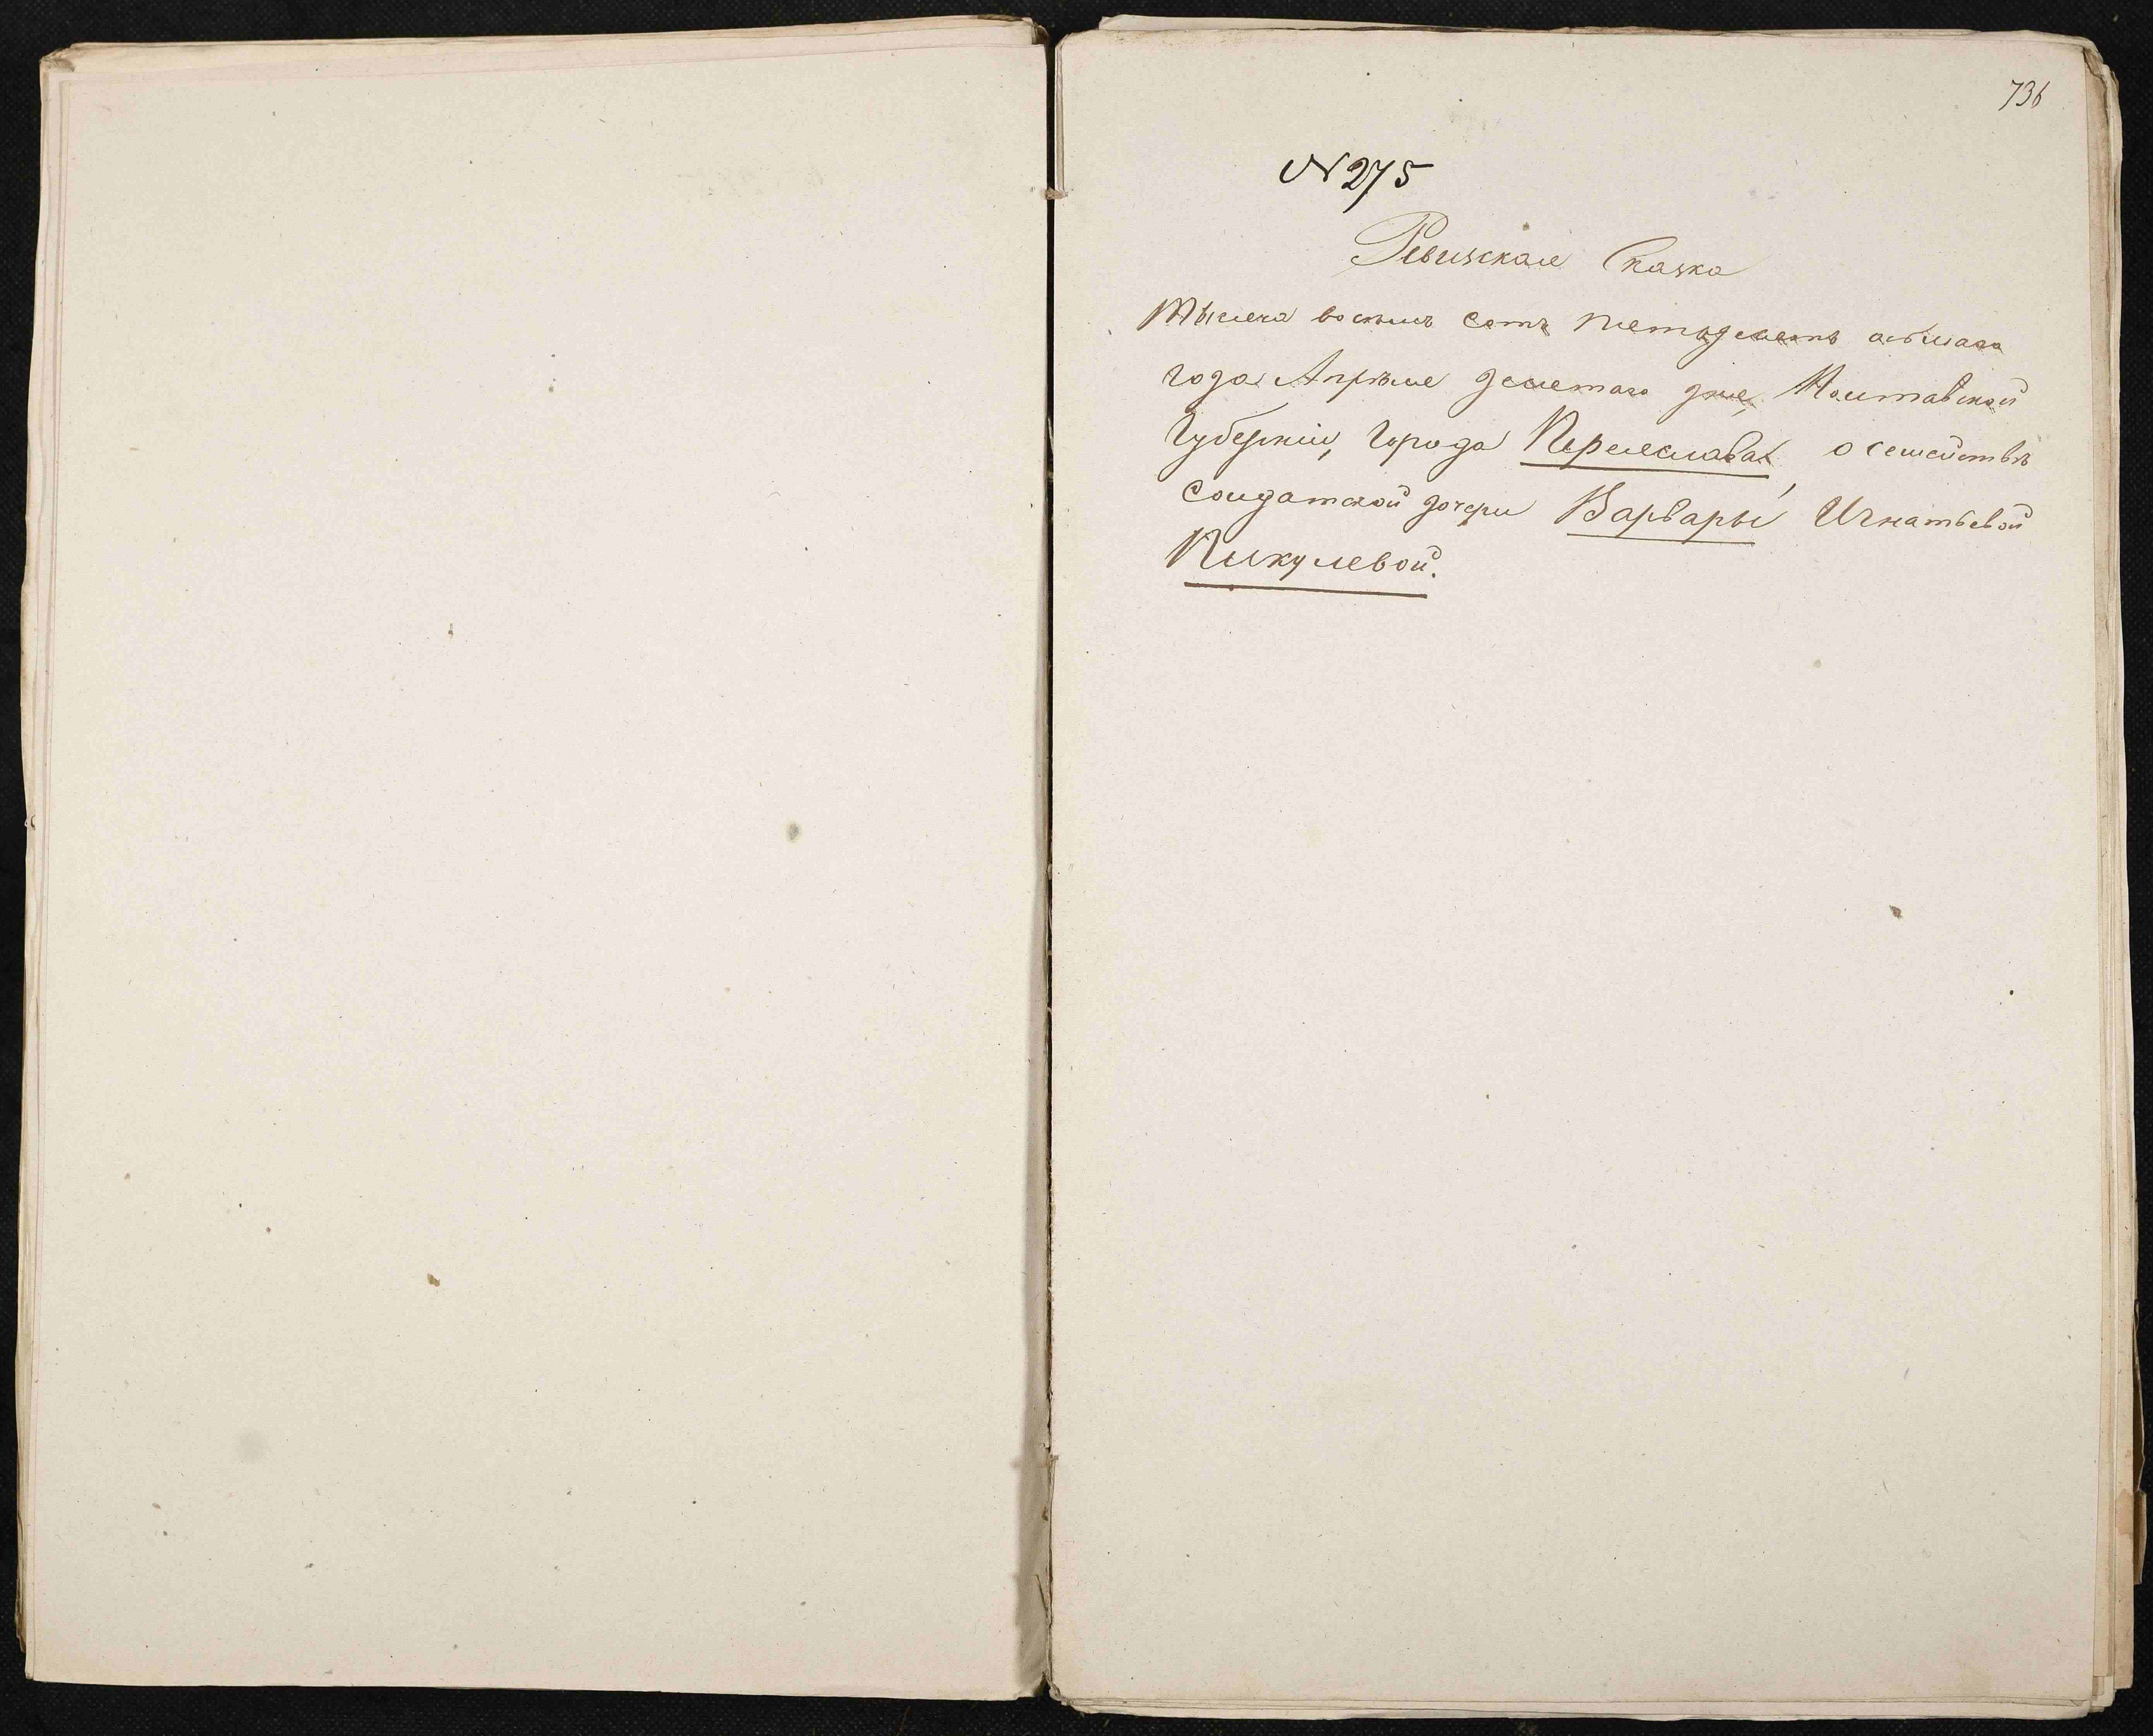 736
№ 275
Ревизская Сказка
Тысяча восемь сотъ пятьдесятъ осьмаго
года Апрѣля десятаго дня, Полтавской
Губерніи, Города Переяслава, о семействѣ
Солдатской дочери Варвары Игнатьевой
Пикулевой.